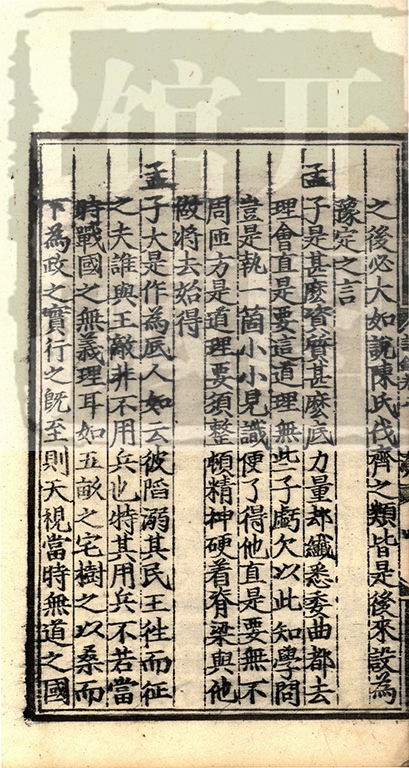 之後必大如說陳氏伐齊之類皆是後來設為
豫定之言
孟子是甚麽資質甚麽底力量却纖悉委曲都去
理會直是要這道理無些子虧欠以此知學問
豈是執一箇小小見識便了得他直是要無不
周匝方是道理要須整頓精神硬着脊梁與他
做将去始得
孟子大是作為底人如云彼陷溺其民王徃而征
之夫誰與王敵非不用兵也特其用兵不若當
時戰國之無義理耳如五畝之宅樹之以桑而
下為政之實行之旣至則天視當時無道之國